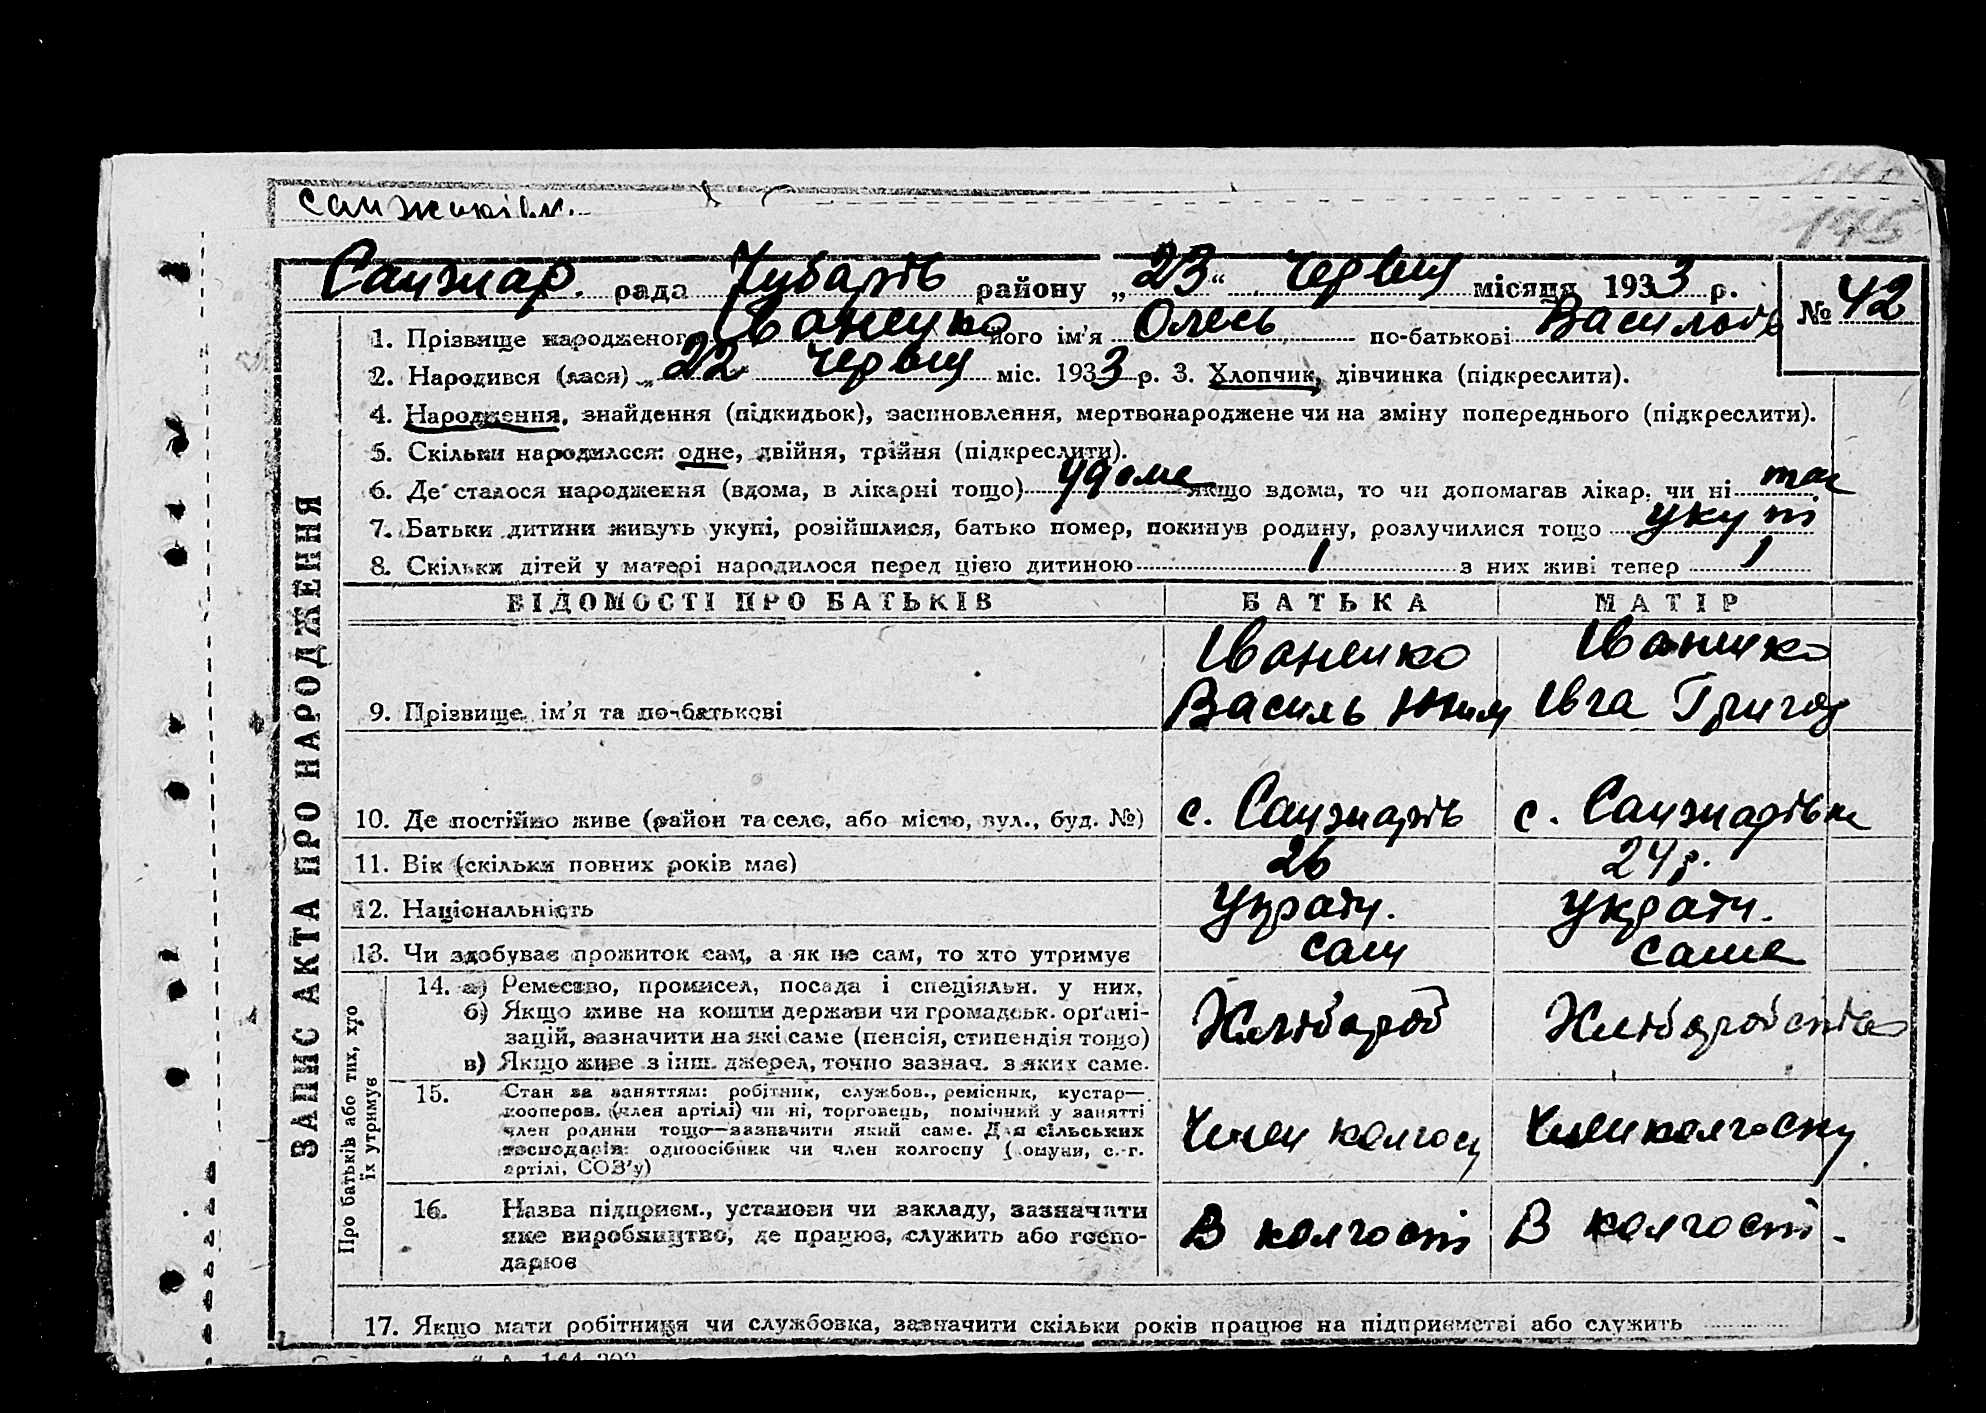 Санжар. рада Чубарів району „23“ червня місяця 1933 р. № 42
1. Прізвище народженого Іваненко його ім'я Олесь по-батькові
2. Народився (лася) „22 червня міс. 1933 р. 3. Хлопчик, дівчинка (підкреслити).
4. Народження, знайдення (підкидьок), засиновлення, мертвонароджене чи на зміну попереднього (підкреслити).
5. Скільки народилося: одне, двійня, трійня (підкреслити).
6. Де сталося народження (вдома, в лікарні тощо) удома якщо вдома, то чи допомагав лікар, чи ні так
7. Батьки дитини живуть укупі, розійшлися, батько помер, покинув родину, розлучилися тощо укупі
8. Скільки дітей у матері народилося перед цією дитиною 1 з них живі тепер 1
ЗАПИС АКТА ПРО НАРОДЖЕННЯ
ВІДОМОСТІ ПРО БАТЬКІВ БАТЬКА МАТІР
Іваненко Іваненко
9. Прізвище, ім'я та по-батькові Василь Ївга Григор
10. Де постійно живе (район та село, або місто, вул., буд. №) с. Санжарів с. Санжарівка
11. Вік (скільки повних років має) 26 24 р.
12. Національність Украін. Украін.
13. Чи здобуває прожиток сам, а як не сам, то хто утримує сам сама
Про батьків або тих, хто
їх утримує
14. а) Ремество, промисел, посада і спеціяльн. у них.
б) Якщо живе на кошти держави чи громадськ. органі-
зацій, зазначити на які саме (пенсія, стипендія тощо) Хлібороб
в) Якщо живе з інш. джерел, точно зазнач. з яких саме.
15. Стан за заняттям: робітник, службов., ремісник, кустар—
кооперов. (член артілі) чи ні, торговець, помічний у занятті
член родини тощо—зазначити який саме. Для сільських
господарів: одноосібник чи член колгоспу (комуни, с.-г.
артілі, СОЗ'у) Член колгосп Член колгоспу
16. Назва підприєм., установи чи закладу, зазначити
яке виробництво, де працює, служить або госпо-
дарює В колгоспі В колгоспі.
17. Якщо мати робітниця чи службовка, зазначити скільки років працює на підприємстві або служить